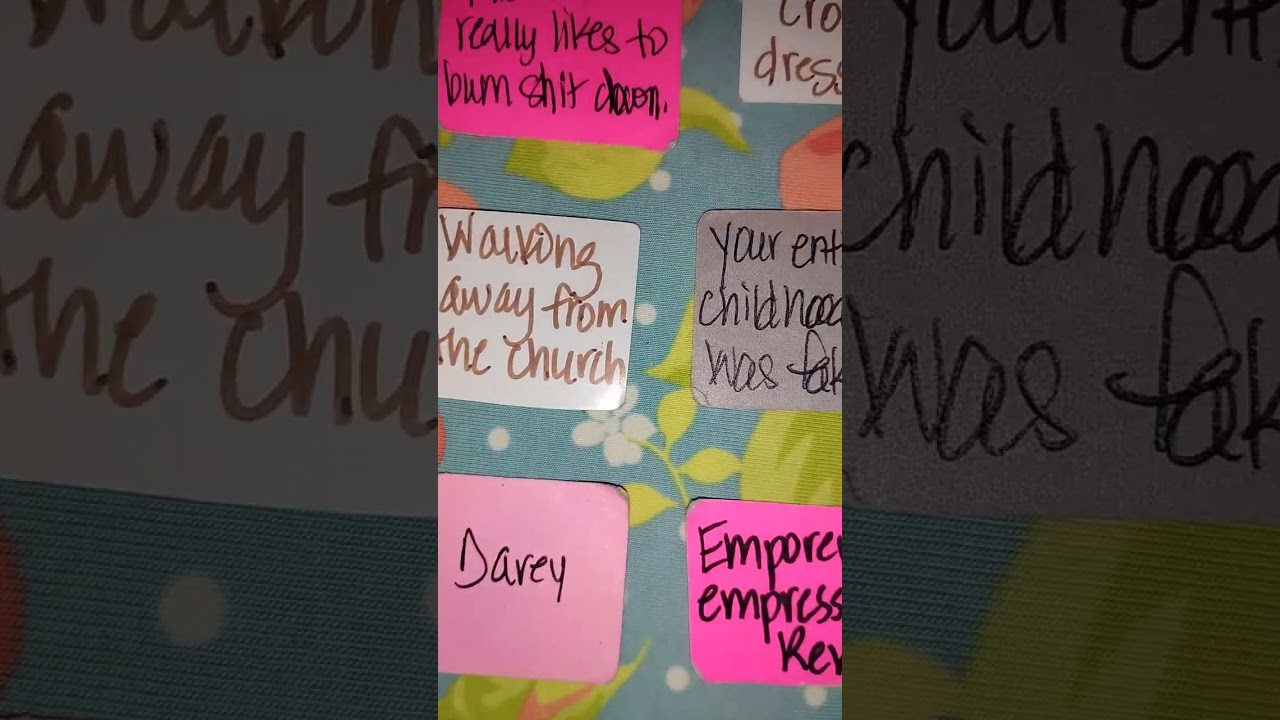 really likes to
burn shit down.
Cro
dress
Walking
away from
the church
your ent
childhood
was fak
Darey
Emporer
empress
Rev